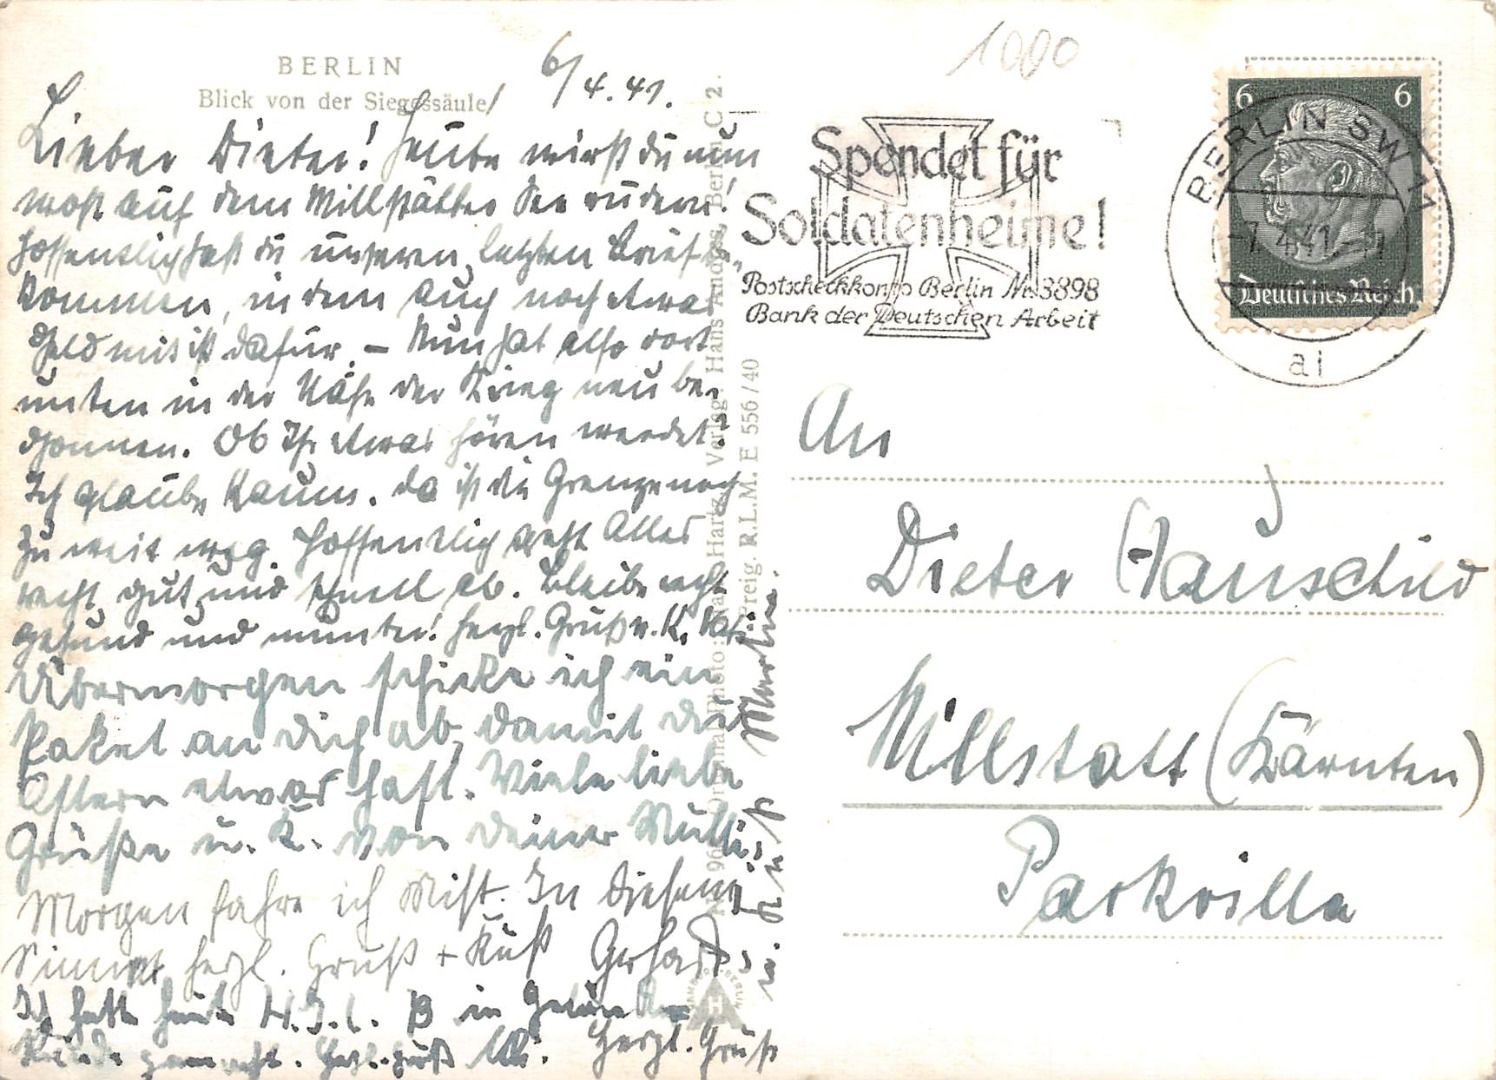 BERLIN
Blick von der Siegessäule
6/4.41.
Lieber Dieter! Heute wirst du nun
wohl auf dem Millstätter See rudern!
Hoffentlich hast du unseren letzten Brief be-
kommen, in dem auch noch etwas
Geld mit ist dafür. – Nun hat also dort
unten in der Nähe der Krieg neu be-
gonnen. Ob Ihr etwas hören werdet?
Ich glaube kaum. da ist die Grenze noch
zu weit weg. Hoffentlich geht Alles
recht gut und schnell ab. Bleibe recht
gesund und munter! Herzl. Gruß u. K.
Übermorgen schicke ich ein
Paket an dich ab, damit du
Ostern etwas hast. Viele liebe
Grüße u. K. von deiner Mutti.
Morgen fahre ich Mist. In diesem
Sinne herzl. Gruß + Kuß Gerhard
Ich habe heute in
gemacht. Herzl. Gruß
Herzl. Gruß
u. Kuß Martin.
Verlag: Hans Andres, Berlin C 2.
R.L.M. E 556/40
1000
Spendet für
Soldatenheime!
Postscheckkonto Berlin Nr. 3898
Bank der Deutschen Arbeit
6 6
Deutsches Reich
BERLIN SW 11
-7.4.41.
ai
An
Dieter Hauschild
Millstatt (Kärnten)
Parkvilla